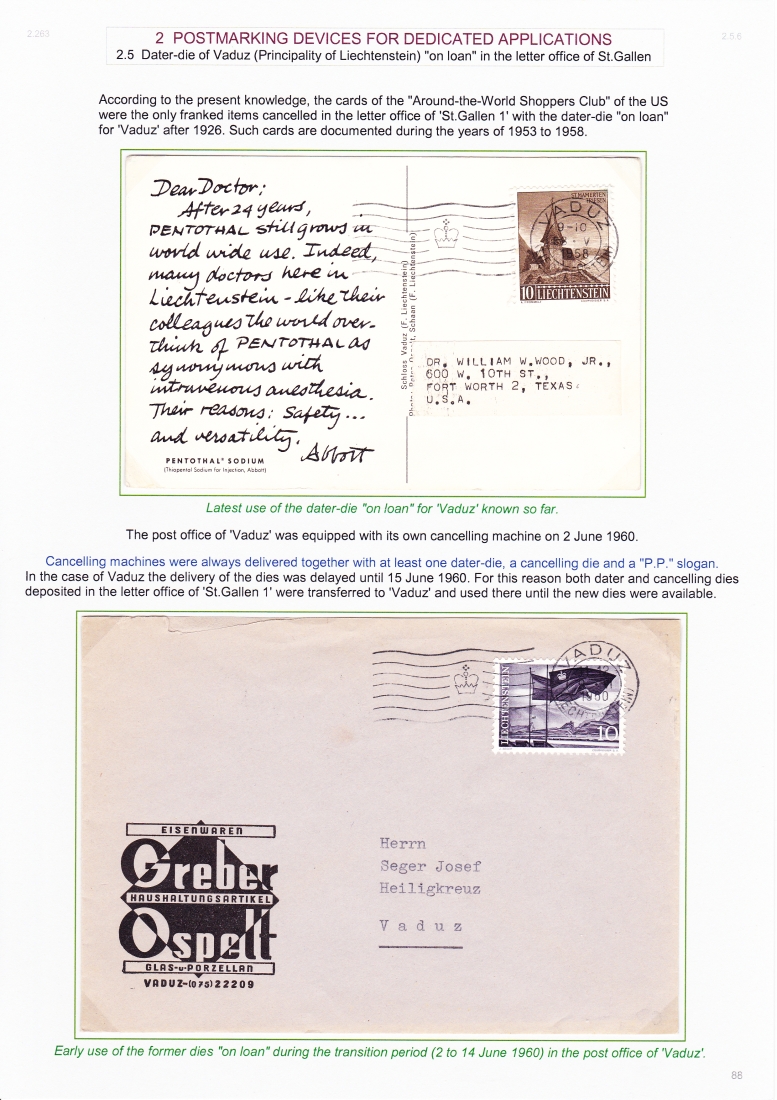 2.263
2.5.6
2 POSTMARKING DEVICES FOR DEDICATED APPLICATIONS
2.5 Dater-die of Vaduz (Principality of Liechtenstein) "on loan" in the letter office of St.Gallen
According to the present knowledge, the cards of the "Around-the-World Shoppers Club" of the US
were the only franked items cancelled in the letter office of 'St.Gallen 1' with the dater-die "on loan"
for 'Vaduz' after 1926. Such cards are documented during the years of 1953 to 1958.
Dear Doctor:
After 24 years,
PENTOTHAL still grows in
world wide use. Indeed,
many doctors here in
Liechtenstein - like their
colleagues the world over-
think of PENTOTHAL as
synonymous with
intravenous anesthesia.
Their reasons: Safety...
and versatility.
Abbott
PENTOTHAL® SODIUM
(Thiopental Sodium for Injection, Abbott)
Schloss Vaduz (F. Liechtenstein)
Schaan (F. Liechtenstein)
ST.MAMERTEN
TRIESEN
10 LIECHTENSTEIN
VADUZ
9-10
V
1958
DR. WILLIAM W.WOOD, JR.,
600 W. 10TH ST.,
FORT WORTH 2, TEXAS
U.S.A.
Latest use of the dater-die "on loan" for 'Vaduz' known so far.
The post office of 'Vaduz' was equipped with its own cancelling machine on 2 June 1960.
Cancelling machines were always delivered together with at least one dater-die, a cancelling die and a "P.P." slogan.
In the case of Vaduz the delivery of the dies was delayed until 15 June 1960. For this reason both dater and cancelling dies
deposited in the letter office of 'St.Gallen 1' were transferred to 'Vaduz' and used there until the new dies were available.
VADUZ
1960
LIECHTENSTEIN
10
EISENWAREN
Greber
HAUSHALTUNGSARTIKEL
Ospelt
GLAS-u-PORZELLAN
VADUZ-(075)22209
Herrn
Seger Josef
Heiligkreuz
Vaduz
Early use of the former dies "on loan" during the transition period (2 to 14 June 1960) in the post office of 'Vaduz'.
88